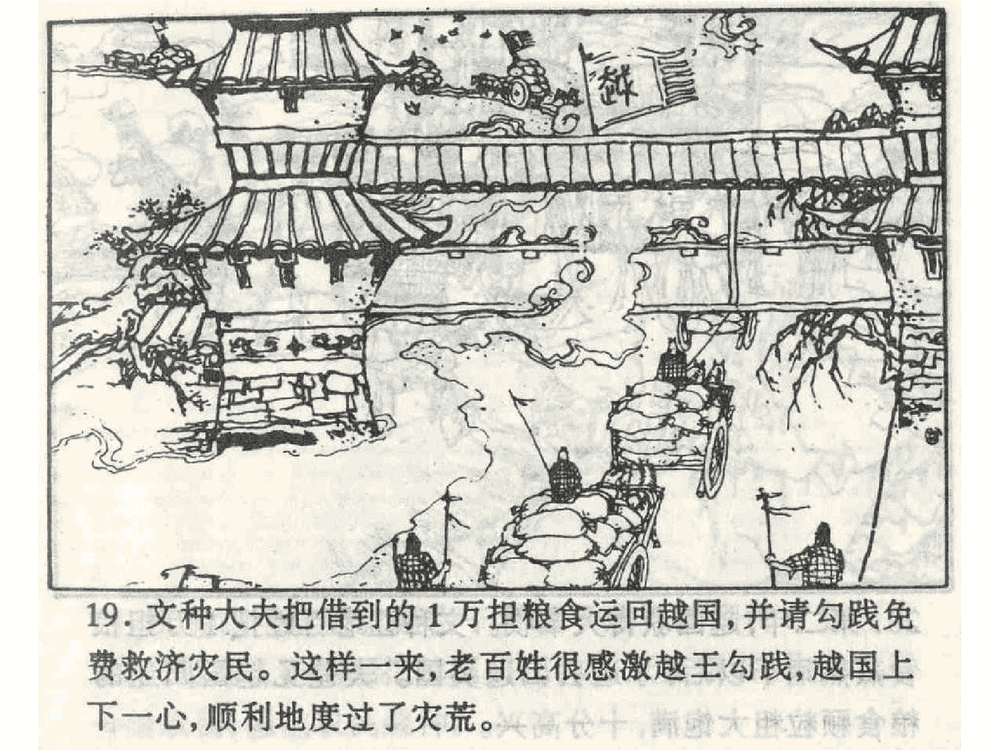 越
19. 文种大夫把借到的 1 万担粮食运回越国,并请勾践免
费救济灾民。这样一来,老百姓很感激越王勾践,越国上
下一心,顺利地度过了灾荒。